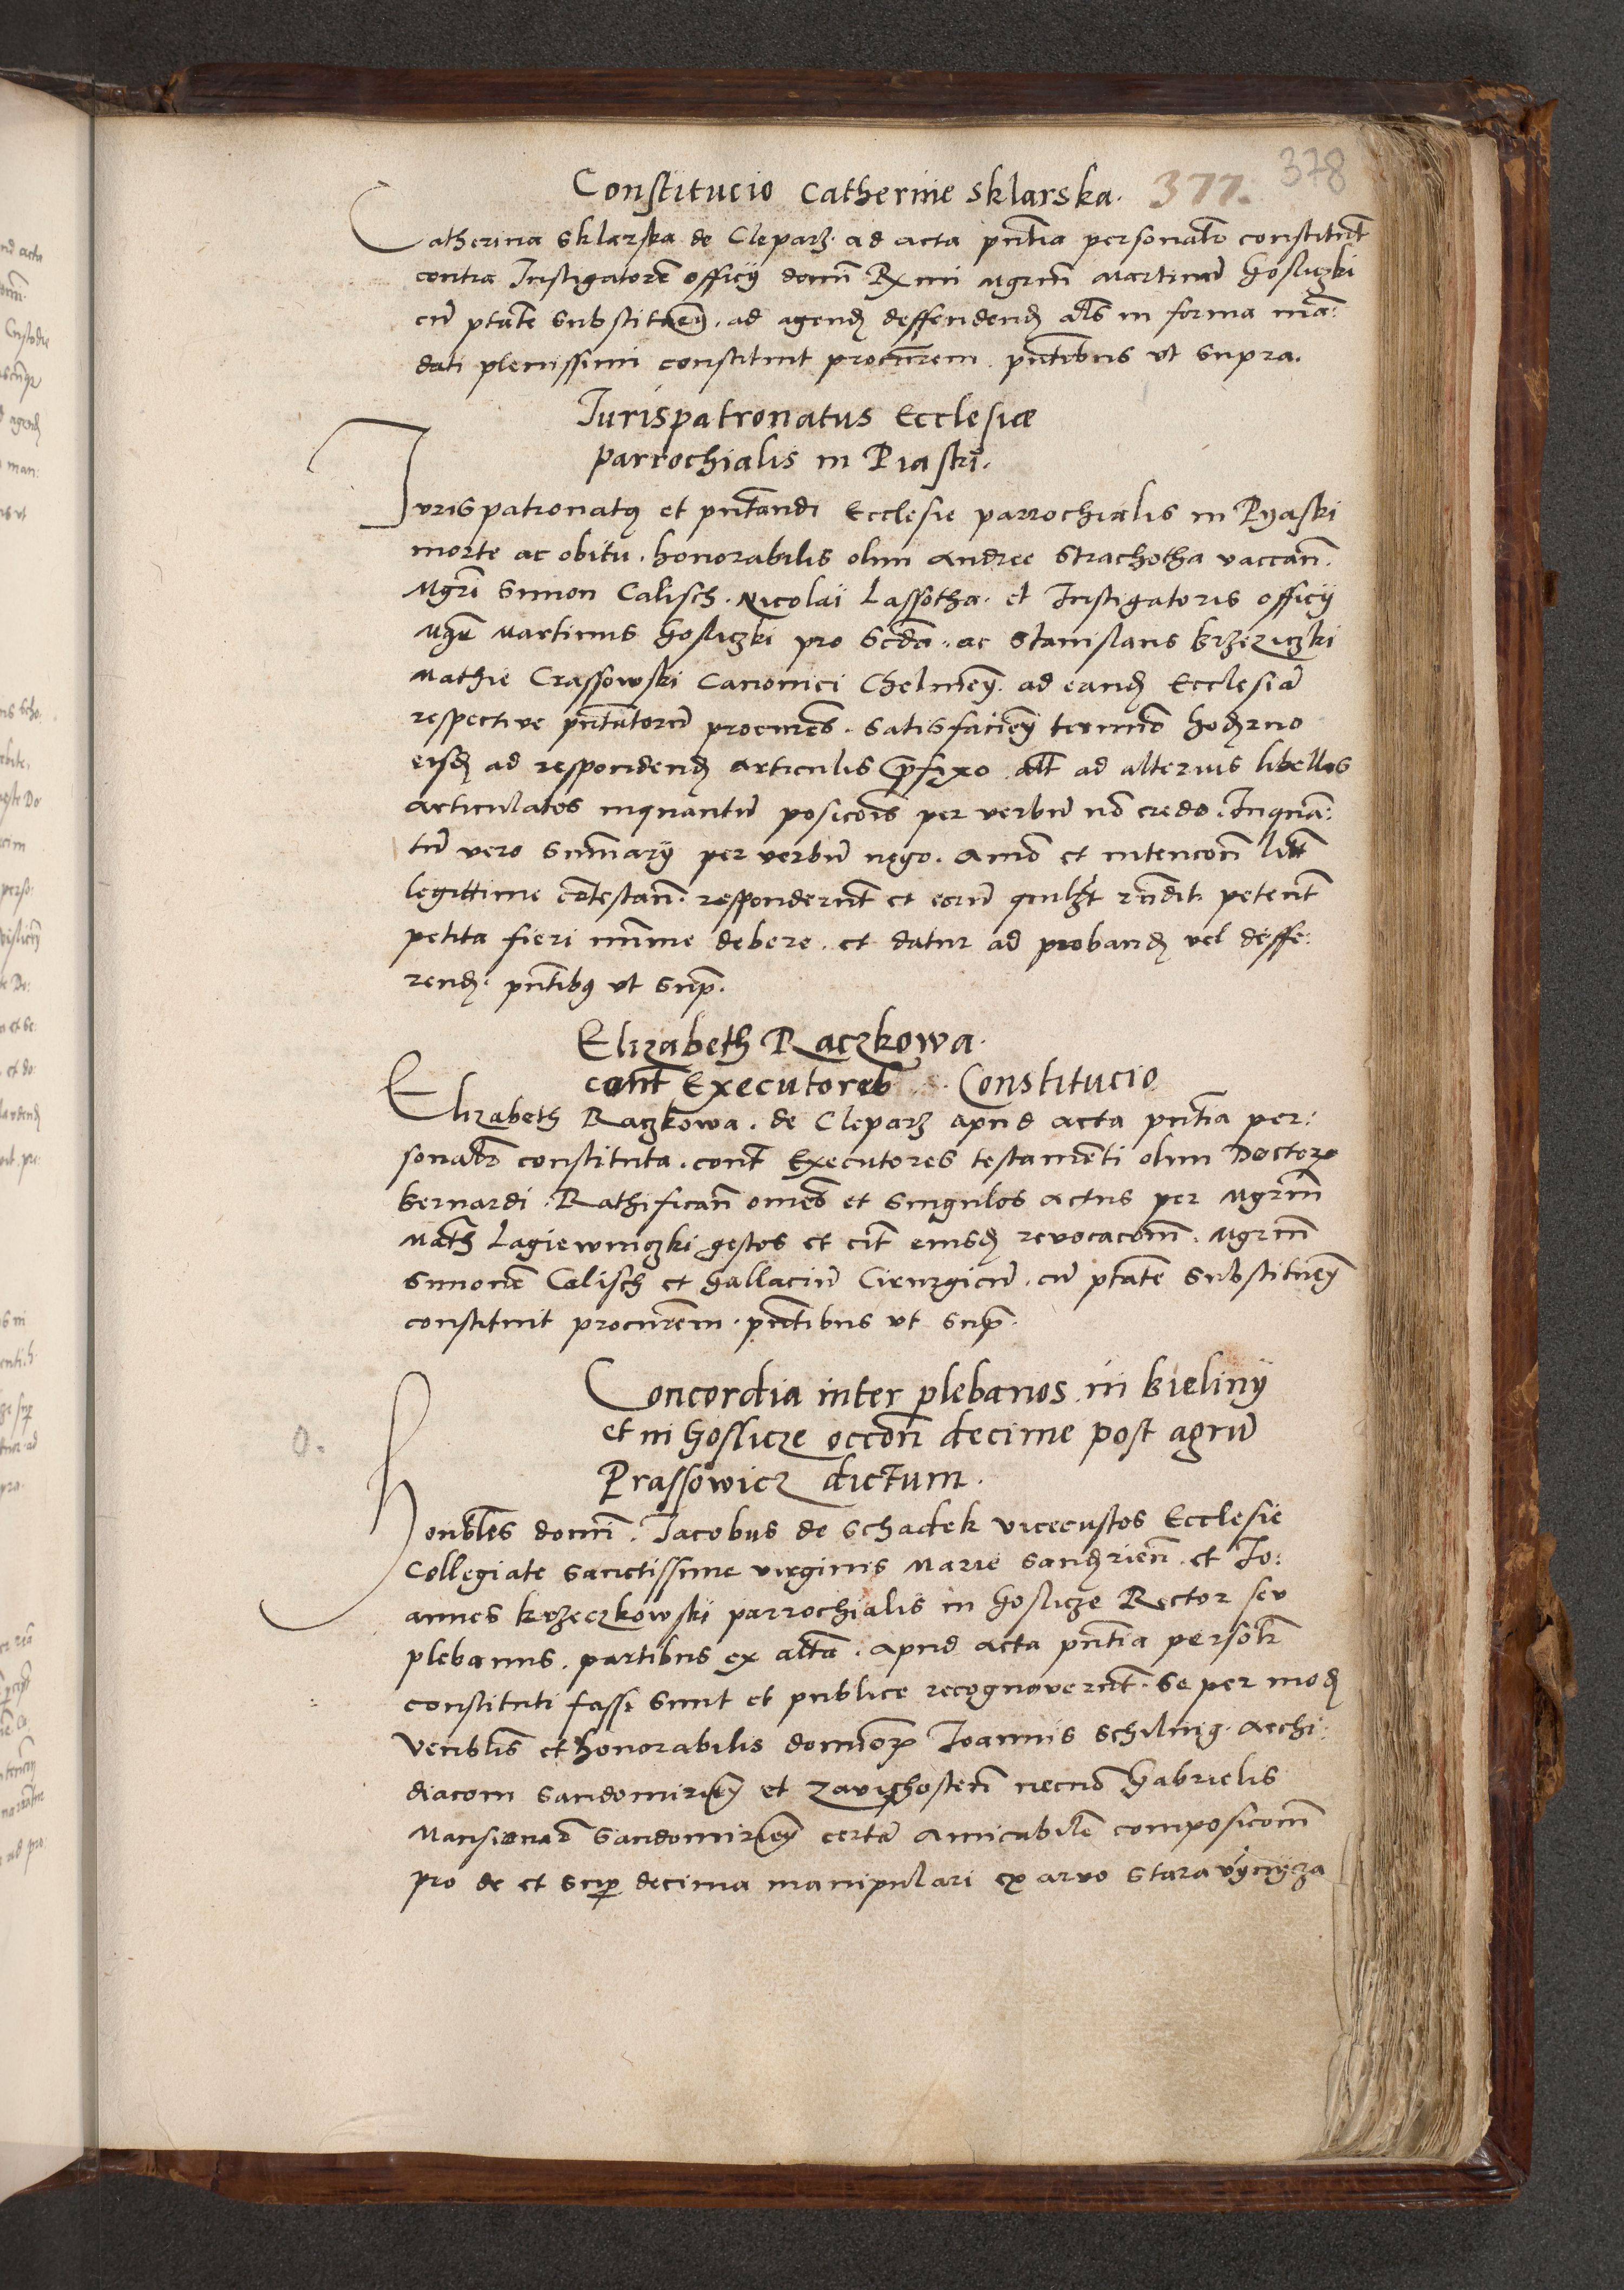 Constitucio Catherine Sklarska. 377. 378
Catherina Sklarska de Cleparz. ad acta pntia personalr constitut
contra Instigatorē officij domī Rxmi Mgrm̄ Martinū Gosliczki
cū ptate substituen̄. ad agend deffendend als in forma man:
dati plenissimi constituit procurem. pntibus ut supra.
Jurispatronatus Ecclesiæ
parrochialis in Piaski.
Juris patronatus et pntandi Ecclesie parrochialis in Pyaski
morte ac obitu. honorabilis olim Andree Strachotha vaccan̄.
Mgri Simon Calisch. Nicolai Lassotha. et Instigatoris officij
Martinus Gosliczki pro scda. ac Stanislaus
Mathie Crassowski Canonici Chelmen̄. ad eand Ecclesiā
respective pntatorū procures. satisfacien̄ termino hodrno
eisd ad respondend articulis prefixo alt ad alterius libellos
articulatos inquantū posicōis per verbū nō credo. Inquan:
tū vero summarij per verbū nego. Animo et intencōn litt
legittime cōtestan̄. responderunt et eorū quilzt rn̄dit petent
petita fieri minime debere. et datur ad proband vel deffe:
rend. pntibus ut supr.
Elizabeth Raczkowa.
cont Executores Constitucio
Elizabeth Raczkowa. de Cleparz apud acta pntia per:
sonalr constituta. cont Executores testamenti olim Doctor
Bernardi. Rathifican̄ omes et singulos actus per Mgrm̄
Math Lagiewniczki gestos et cit eiusd revocacōm. Mgrm̄
Simonē Calisch et Gallaciū Cirurgicū. cū ptate substituen̄
constituit procurem. pntibus ut supr.
Concordia inter plebanos in Bieliny
et in Goslicze occōn decime post agrū
Prassowicz dictum.
0.
Honbles domī. Jacobus de Schadek vicecustos Ecclesie
Collegiate sanctissime virginis Marie Sandrien̄. et Jo:
annes Krzeczkowski parrochialis in Goslicze Rector seu
plebanus. partibus ex altā. apud acta pntia persolr
constituti fassi sunt et publice recognoverunt. se per mod
Venblis et honorabilis dominor Joannis Schiling. Archi:
diaconi Sandomirien̄ et Zavichosten̄ necnō Gabrielis
Mansionar Sandomirien̄ certā amicabilē composicōm
pro de et supr decima manipulari ex arvo Stara